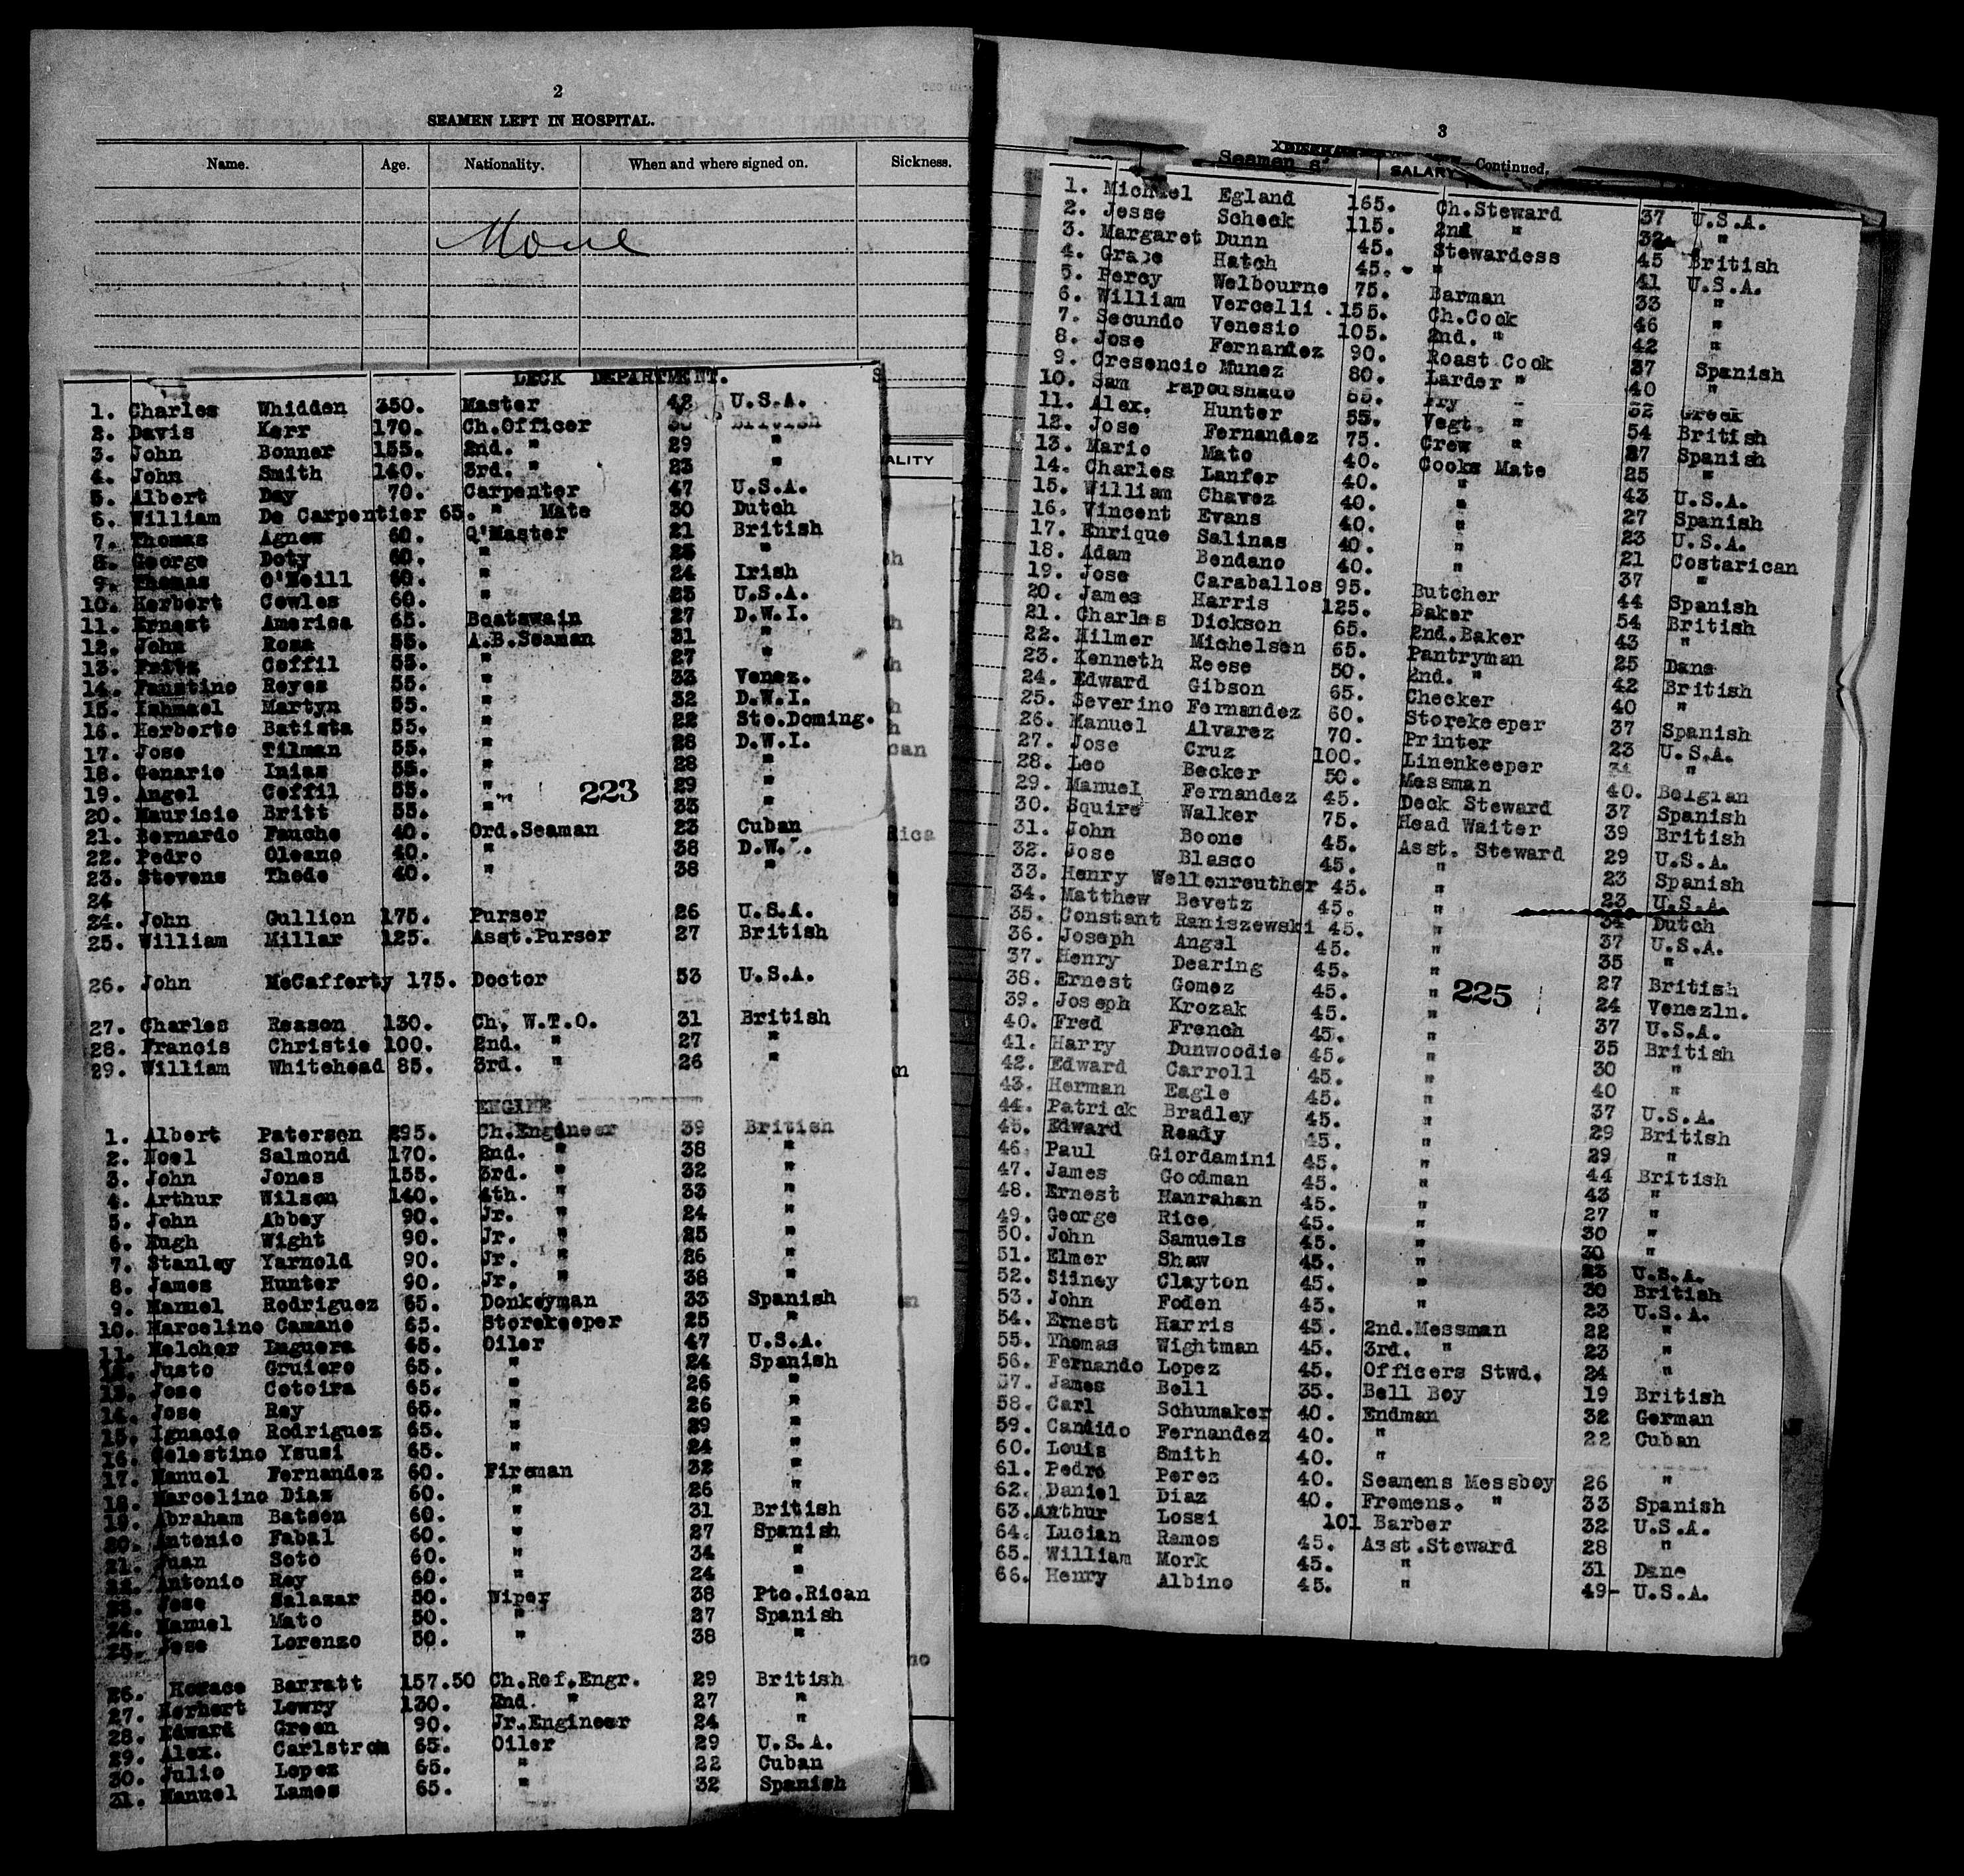 2
SEAMEN LEFT IN HOSPITAL.
Name. Age. Nationality. When and where signed on. Sickness.
None
DECK DEPARTMENT.
1. Charles Whidden 350. Master 42 U.S.A.
2. Davis Kerr 170. Ch.Officer British
3. John Bonner 155. 2nd. " 29 "
4. John Smith 140. 3rd. " 23 "
5. Albert Day 70. Carpenter 47 U.S.A.
6. William De Carpentier 65. " Mate 30 Dutch
7. Thomas Agnew 60. Q'Master 21 British
8. George Doty 60. " 25 "
9. Thomas O'Neill 60. " 24 Irish
10. Herbert Cowles 60. " 23 U.S.A.
11. Ernest America 65. Boatswain 27 D.W.I.
12. John Rosa 55. A.B.Seaman 31 "
13. Fritz Coffil 55. " 27 "
14. Faustino Reyes 55. " 33 Venez.
15. Ishmael Martyn 55. " 32 D.W.I.
16. Herberto Batista 55. " 22 Sto.Doming.
17. Jose Tilman 55. " 28 D.W.I.
18. Genario Inias 55. " 28 "
19. Angel Coffil 55. " 29 "
223
20. Mauricio Britt 55. " 35 "
21. Bernardo Fauche 40. Ord.Seaman 23 Cuban
22. Pedro Oleano 40. " 38 D.W. .
23. Stevens Thode 40. " 38 "
24
24. John Gullion 175. Purser 26 U.S.A.
25. William Millar 125. Asst.Purser 27 British
26. John McCafferty 175. Doctor 53 U.S.A.
27. Charles Reason 130. Ch. W.T.O. 31 British
28. Francis Christie 100. 2nd. " 27 "
29. William Whitehead 85. 3rd. " 26 "
ENGINE
1. Albert Paterson 295. Ch.Engineer 39 British
2. Noel Salmond 170. 2nd. " 38 "
3. John Jones 155. 3rd. " 32 "
4. Arthur Wilson 140. 4th. " 33 "
5. John Abbey 90. Jr. " 24 "
6. Hugh Wight 90. Jr. " 25 "
7. Stanley Yarnold 90. Jr. " 26 "
8. James Hunter 90. Jr. " 38 "
9. Manuel Rodriguez 65. Donkeyman 33 Spanish
10. Marcelino Camano 65. Storekeeper 25 "
11. Melchor Daguera 65. Oiler 47 U.S.A.
12. Justo Gruiero 65. " 24 Spanish
13. Jose Cotoira 65. " 26 "
14. Jose Rey 65. " 26 "
15. Ignacio Rodriguez 65. " 29 "
16. Celestino Ysusi 65. " 24 "
17. Manuel Fernandez 60. Fireman 32 "
18. Marcelino Diaz 60. " 26 "
19. Abraham Batson 60. " 31 British
20. Antonio Fabal 60. " 27 Spanish
21. Juan Soto 60. " 34 "
22. Antonio Rey 60. " 24 "
23. Jose Salazar 50. Wiper 38 Pto.Rican
24. Manuel Mato 50. " 27 Spanish
25. Jose Lorenzo 50. " 38 "
26. Horace Barratt 157.50 Ch.Ref.Engr. 29 British
27. Herbert Lowry 130. 2nd. " 27 "
28. Edward Green 90. Jr.Engineer 24 "
29. Alex. Carlstrom 65. Oiler 29 U.S.A.
30. Julio Lopez 65. " 22 Cuban
31. Manuel Lames 65. " 32 Spanish
ALITY
3
Seamen s SALARY Continued.
1. Michael Egland 165. Ch.Steward 37 U.S.A.
2. Jesse Scheck 115. 2nd " 32 "
3. Margaret Dunn 45. Stewardess 45 British
4. Grace Hatch 45. " 41 U.S.A.
5. Percy Welbourne 75. Barman 33 "
6. William Vercelli 155. Ch.Cook 46 "
7. Secundo Venesio 105. 2nd. " 42 "
8. Jose Fernandez 90. Roast Cook 37 Spanish
9. Cresencio Munez 80. Larder " 40 "
10. Sam Papoushado 65. Fry " 32 Greek
11. Alex. Hunter 55. Vegt. " 54 British
12. Jose Fernandez 75. Crew " 27 Spanish
13. Mario Mato 40. Cooks Mate 25 "
14. Charles Lanfer 40. " 43 U.S.A.
15. William Chavez 40. " 27 Spanish
16. Vincent Evans 40. " 23 U.S.A.
17. Enrique Salinas 40. " 21 Costarican
18. Adam Bendano 40. " 37 "
19. Jose Caraballos 95. Butcher 44 Spanish
20. James Harris 125. Baker 54 British
21. Charles Dickson 65. 2nd.Baker 43 "
22. Hilmer Michelsen 65. Pantryman 25 Dane
23. Kenneth Reese 50. 2nd. " 42 British
24. Edward Gibson 65. Checker 40 "
25. Severino Fernandez 60. Storekeeper 37 Spanish
26. Manuel Alvarez 70. Printer 23 U.S.A.
27. Jose Cruz 100. Linenkeeper "
28. Leo Becker 50. Messman 40. Belgian
29. Manuel Fernandez 45. Deck Steward 37 Spanish
30. Squire Walker 75. Head Waiter 39 British
31. John Boone 45. Asst. Steward 29 U.S.A.
32. Jose Blasco 45. " 23 Spanish
33. Henry Wellenreuther 45. " 23 U.S.A.
34. Matthew Bevetz 45. " 34 Dutch
35. Constant Raniszewski 45. 37 U.S.A.
36. Joseph Angel 45. " 35 "
37. Henry Dearing 45. " 27 British
38. Ernest Gomez 45. " 24 Venezln.
225
39. Joseph Krozak 45. " 37 U.S.A.
40. Fred French 45. " 35 British
41. Harry Dunwoodie 45. " 30 "
42. Edward Carroll 45. " 40 "
43. Herman Eagle 45. " 37 U.S.A.
44. Patrick Bradley 45. " 29 British
45. Edward Ready 45. " 29 "
46. Paul Giordamini 45. " 44 British
47. James Goodman 45. " 43 "
48. Ernest Hanrahan 45. " 27 "
49. George Rice 45. " 30 "
50. John Samuels 45. " 30 "
51. Elmer Shaw 45. " 23 U.S.A.
52. Siiney Clayton 45. " 30 British
53. John Foden 45. " 23 U.S.A.
54. Ernest Harris 45. 2nd.Messman 22 "
55. Thomas Wightman 45. 3rd. " 23 "
56. Fernando Lopez 45. Officers Stwd. 24 "
57. James Bell 35. Bell Boy 19 British
58. Carl Schumaker 40. Endman 32 German
59. Candido Fernandez 40. " 22 Cuban
60. Louis Smith 40. "
61. Pedro Perez 40. Seamens Messboy 26 "
62. Daniel Diaz 40. Fremens. " 33 Spanish
63. Arthur Lossi 101 Barber 32 U.S.A.
64. Lucian Ramos 45. Asst.Steward 28 "
65. William Mork 45. " 31 Dane
66. Henry Albino 45. " 49- U.S.A.